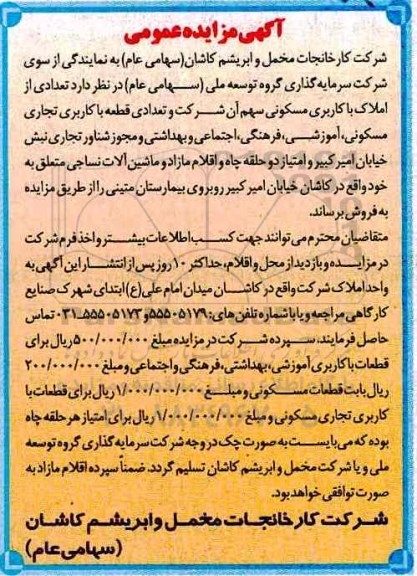 آگهی مزایده عمومی
شرکت کارخانجات مخمل و ابریشم کاشان (سهامی عام) به نمایندگی از سوی
شرکت سرمایه گذاری گروه توسعه ملی (سهامی عام) در نظر دارد تعدادی از
املاک با کاربری مسکونی سهم آن شرکت و تعدادی قطعه با کاربری تجاری
مسکونی، آموزشی، فرهنگی، اجتماعی و بهداشتی و مجوز شناور تجاری نبش
خیابان امیرکبیر و امتیاز دو حلقه چاه و اقلام مازاد و ماشین آلات نساجی متعلق به
خود واقع در کاشان خیابان امیر کبیر روبروی بیمارستان متینی را از طریق مزایده
به فروش برساند.
متقاضیان محترم می توانند جهت کسب اطلاعات بیشتر و اخذ فرم شرکت
در مزایده و بازدید از محل و اقلام، حداکثر ۱۰ روز پس از انتشار این آگهی به
واحد املاک شرکت واقع در کاشان میدان امام علی (ع) ابتدای شهرک صنایع
کارگاهی مراجعه و یا با شماره تلفن های: ۵۵۵۰۵۱۷۹ و ۵۵۵۰۵۱۷۳-۰۳۱ تماس
حاصل فرمایند. سپرده شرکت در مزایده مبلغ ۵۰۰/۰۰۰/۰۰۰ ریال برای
قطعات با کاربری آموزشی، بهداشتی، فرهنگی و اجتماعی و مبلغ ۲۰۰/۰۰۰/۰۰۰
ریال بابت قطعات مسکونی و مبلغ ۱/۰۰۰/۰۰۰/۰۰۰ ریال برای قطعات با
کاربری تجاری مسکونی و مبلغ ۱/۰۰۰/۰۰۰/۰۰۰ ریال برای امتیاز هر حلقه چاه
بوده که می بایست به صورت چک در وجه شرکت سرمایه گذاری گروه توسعه
ملی و یا شرکت مخمل و ابریشم کاشان تسلیم گردد. ضمناً سپرده اقلام مازاد به
صورت توافقی خواهد بود.
شرکت کارخانجات مخمل و ابریشم کاشان
(سهامی عام)